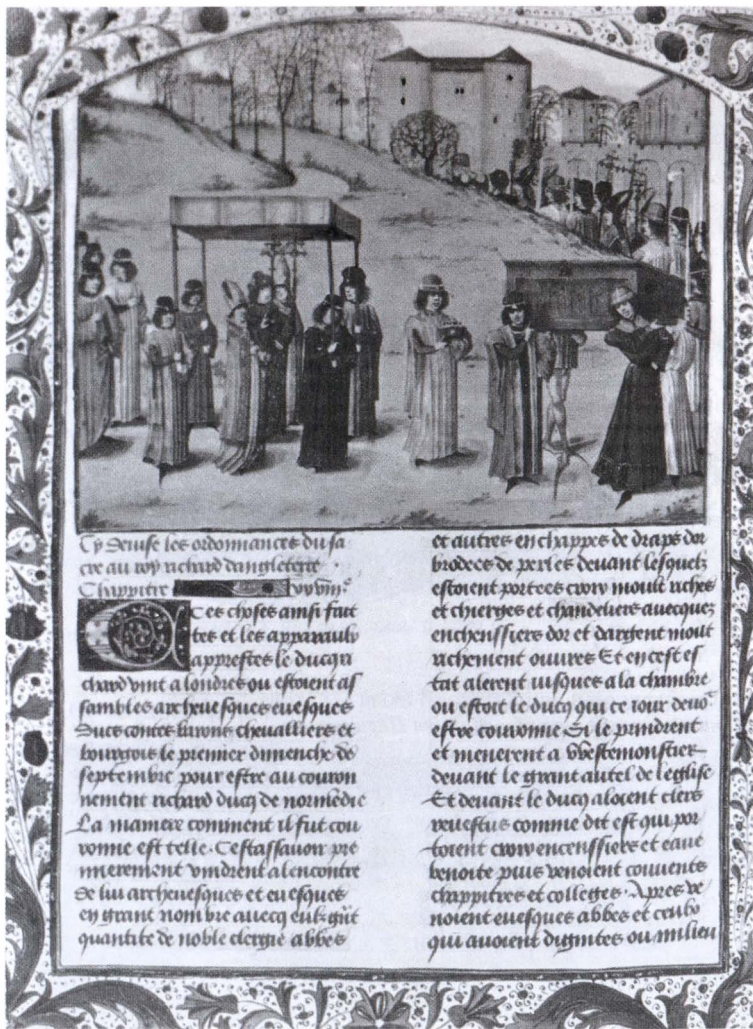 Cy deuise les ordonnances du sa
cre au roy richard dangleterre
Chappitre xxviii.e
Ces choses ainsi fait
tes et les apparaulx
apprestes le ducq ri
chard vint a londres ou estoient as
sambles archeuesques euesques
ducs contes barons cheualliers et
bourgois le premier dimenche de
septembre pour estre au couron
nement richard ducq de normedie
La maniere comment il fut cou
ronne est telle. Cestassauoir pre
mierement vindrent alencontre
de lui archeuesques et euesques
en grant nombre auecq eulx gnt
quantite de noble clergie abbes
et autres en chappes de draps dor
brodees de perles deuant lesquelz
estoient portees croix moult riches
et chierges et chandeliers auecquez
enchenssiers dor et dargent moult
richement ouures Et en cest es
tat alerent iusques a la chambre
ou estoit le ducq qui ce iour deuoit
estre couronne Si le prindrent
et menerent a Westemonstier
deuant le grant autel de leglise
Et deuant le ducq aloient clers
reuestus comme dit est qui por
toient croix encenssiers et eaue
benoite puis venoient couuents
chappitres et colleges. Apres ve
noient euesques abbes et ceulx
qui auoient dignites ou milieu